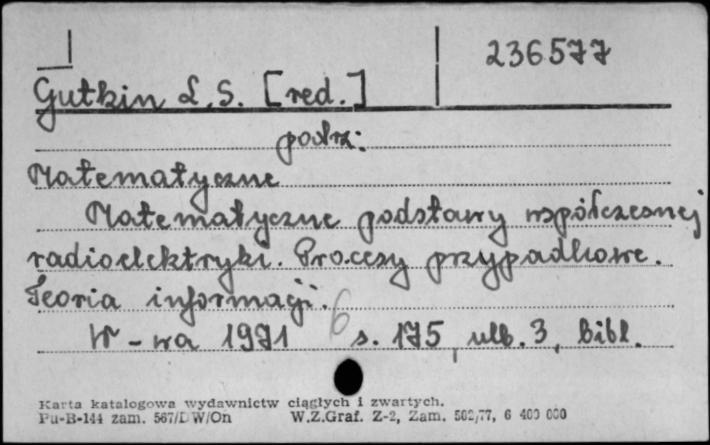 236577
Gutkin L.S. [red.]
podrz:
Matematyczne
Matematyczne podstawy współczesnej
radioelektryki. Procesy przypadkowe.
Teoria informacji.
6
W-wa 1971 s. 175, ulb. 3, bibl.
Karta katalogowa wydawnictw ciągłych i zwartych.
Pu-B-144 zam. 567/DW/On W.Z.Graf. Z-2, Zam. 502/77, 6 400 000